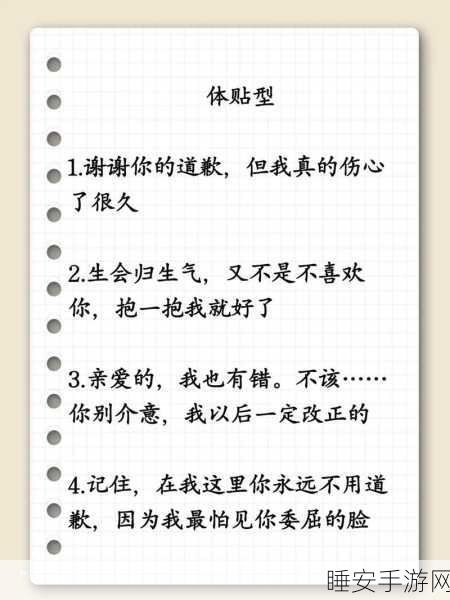 体贴型
1.谢谢你的道歉，但我真的伤心
了很久
2.生会归生气，又不是不喜欢
你，抱一抱我就好了
3.亲爱的，我也有错。不该……
你别介意，我以后一定改正的
4.记住，在我这里你永远不用道
歉，因为我最怕见你委屈的脸
睡安手游网